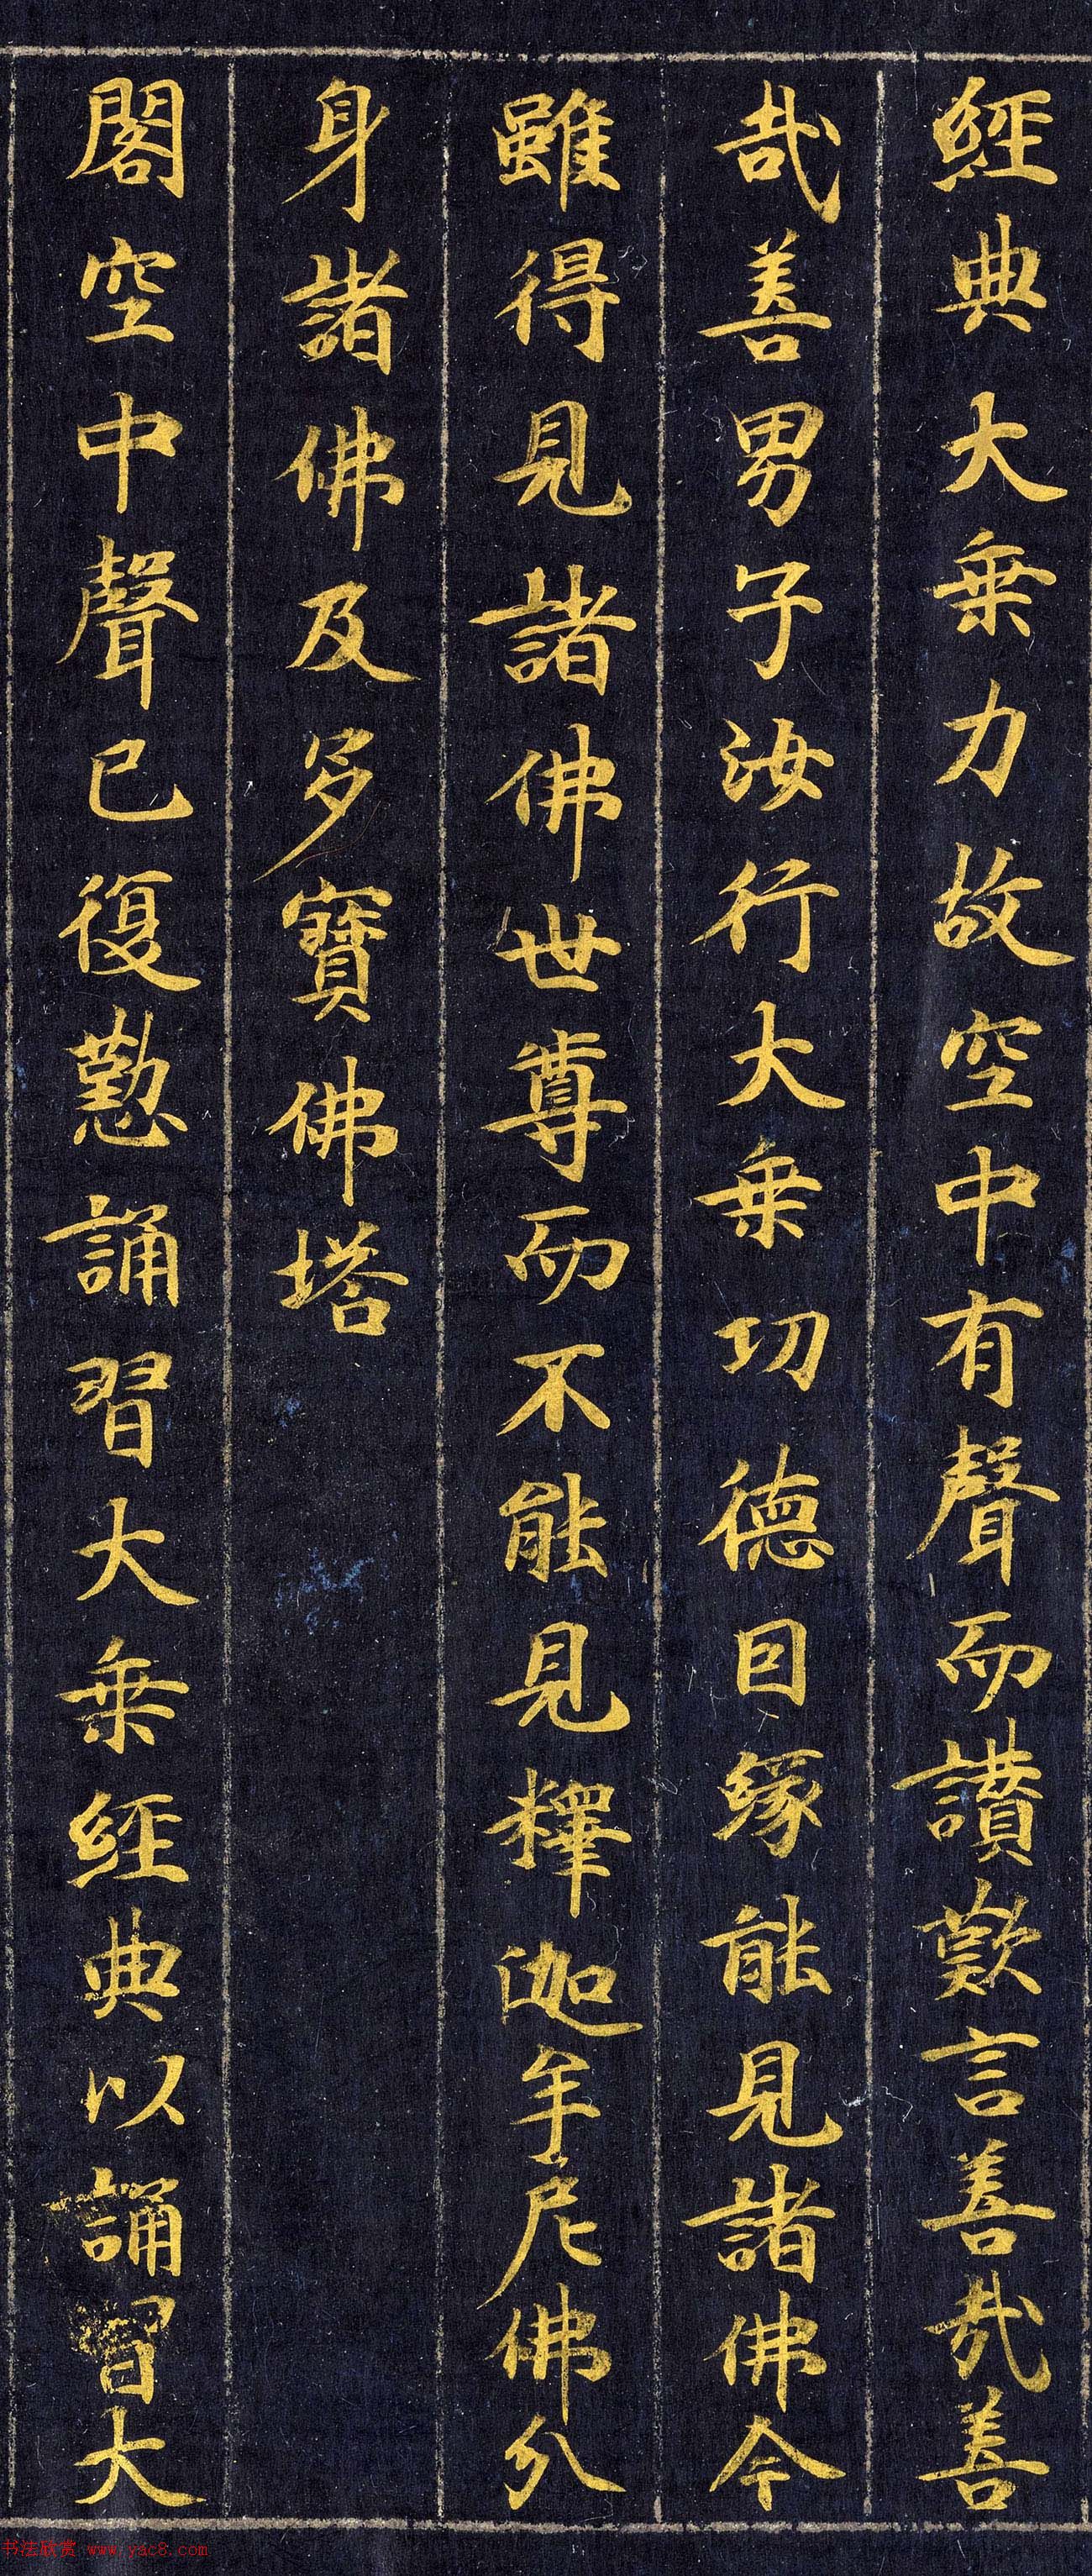 經典大乗力故空中有聲而讃歎言善哉善
哉善男子汝行大乗功德因緣能見諸佛今
雖得見諸佛世尊而不能見釋迦牟尼佛分
身諸佛及多寶佛塔
閣空中聲已復懃誦習大乗經典以誦習大
书法欣赏 www.yac8.com